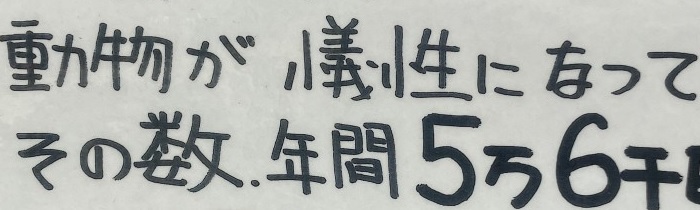 動物が 犠性になって
その数.年間5万6千